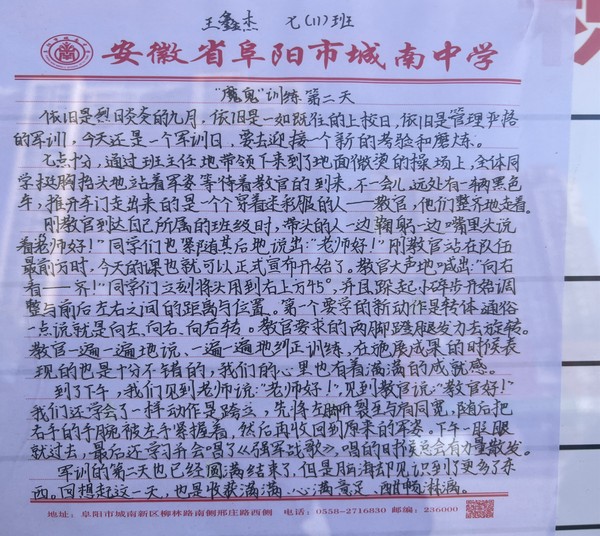 王鑫杰 七(11)班
安徽省阜阳市城南中学
"魔鬼"训练第二天
依旧是烈日炎炎的九月，依旧是一如既往的上校日，依旧是管理严格
的军训，今天还是一个军训日，要去迎接一个新的考验和磨炼。
七点十分，通过班主任地带领下来到了地面微烫的操场上，全体同
学挺胸抬头地站着军姿等待着教官的到来，不一会儿远处有一辆黑色
车，推开车门走出来的是一个个穿着迷彩服的人——教官，他们整齐地走着。
刚教官到达自己所属的班级时，带头的人一边鞠躬一边嘴里头说
着"老师好！"同学们也紧随其后地说出："老师好！"刚教官站在队伍
最前方时，今天的课也就可以正式宣布开始了。教官大声地喊出："向右
看——齐！"同学们立刻将头甩到右上方45°，并且跺起小碎步开始调
整与前后左右之间的距离与位置。第一个要学的新动作是转体，通俗
一点说就是向左、向右、向后转。教官要求的两脚蹬腿发力去旋转。
教官一遍一遍地说、一遍一遍地纠正训练，在施展成果的时候表
现的也是十分不错的，我们的心里也有着满满的成就感。
到了下午，我们见到老师说："老师好！"，见到教官说："教官好！"
我们还学会了一样动作是跨立，先将左脚开裂至与肩同宽，随后把
右手的手腕被左手紧握着，然后再收回到原来的军姿。下午一股腿
就过去，最后还学习并会唱了《强军战歌》，唱的时候总会有力量散发。
军训的第二天也已经圆满结束了，但是脑海却见识到了更多了东
西。回想起这一天，也是收获满满、心满意足、酣畅淋漓。
地址：阜阳市城南新区柳林路南侧邢庄路西侧 电话：0558-2716830 邮编：236000